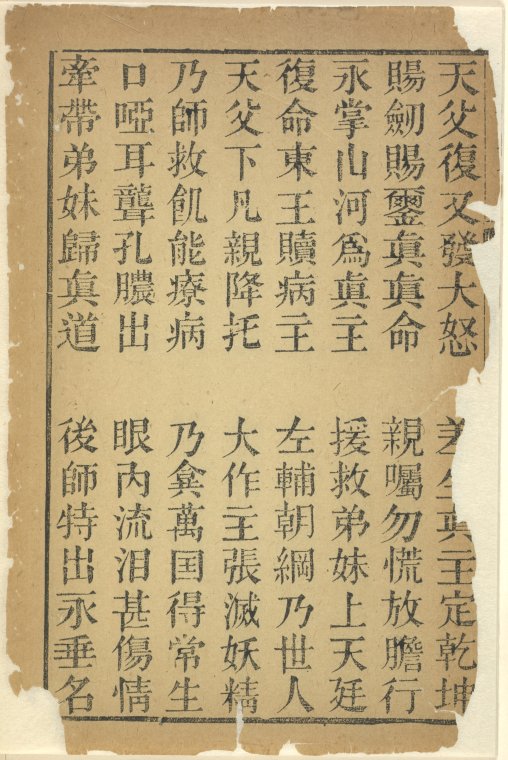 天父復又發大怒 差生眞主定乾坤
賜劒賜璽眞眞命 親囑勿慌放膽行
永掌山河爲眞主 援救弟妹上天廷
復命東王贖病主 左輔朝綱乃世人
天父下凡親降托 大作主張滅妖精
乃師救飢能療病 乃萬国得常生
口啞耳聾孔膿出 眼內流泪甚傷情
牽帶弟妹歸眞道 後師特出永垂名